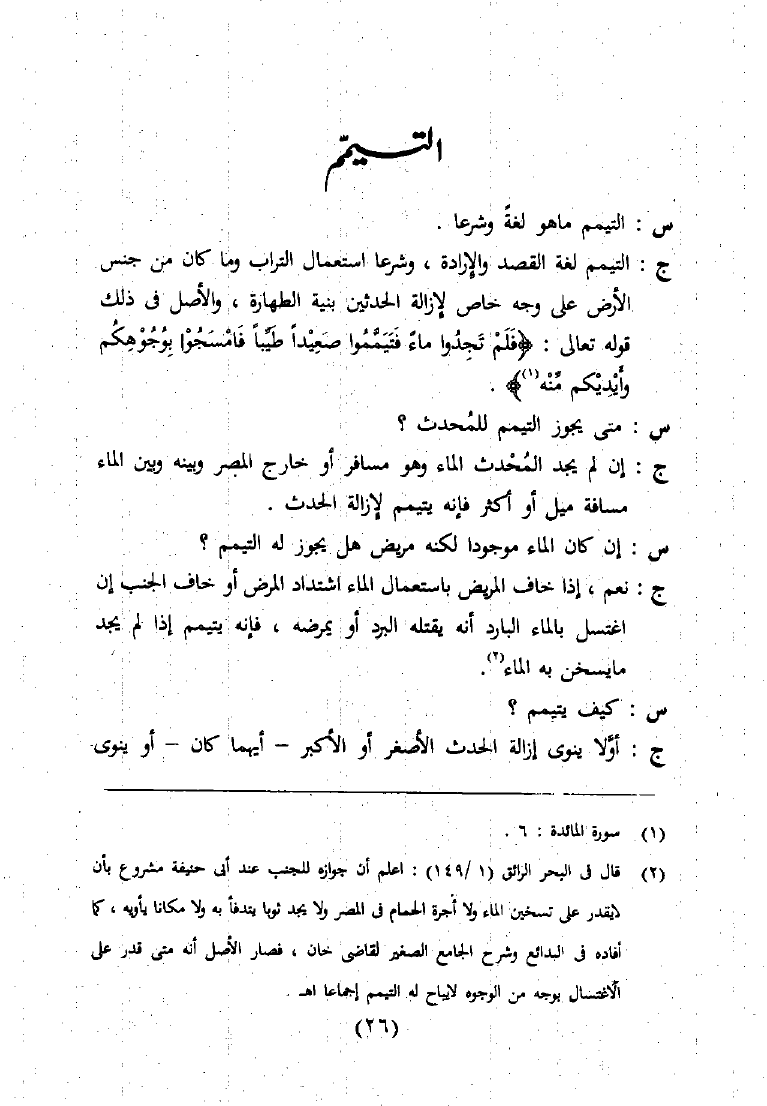 التيمم
س : التيمم ماهو لغةً وشرعا .
ج : التيمم لغة القصد والإرادة ، وشرعا استعمال التراب وما كان من جنس
الأرض على وجه خاص لإزالة الحدثين بنية الطهارة ، والأصل فى ذلك
قوله تعالى : ﴿فَلَمْ تَجِدُوا ماءً فَتَيَمَّمُوا صَعِيْداً طَيِّباً فَامْسَحُوْا بِوُجُوْهِكُم
وأَيْدِيْكم مِّنْه(١)﴾ .
س : متى يجوز التيمم للمُحدث ؟
ج : إن لم يجد المُحْدث الماء وهو مسافر أو خارج المصر وبينه وبين الماء
مسافة ميل أو أكثر فإنه يتيمم لإزالة الحدث .
س : إن كان الماء موجودا لكنه مريض هل يجوز له التيمم ؟
ج : نعم ، إذا خاف المريض باستعمال الماء اشتداد المرض أو خاف الجنب إن
اغتسل بالماء البارد أنه يقتله البرد أو يمرضه ، فإنه يتيمم إذا لم يجد
مايسخن به الماء(٢).
س : كيف يتيمم ؟
ج : أوَّلا ينوى إزالة الحدث الأصغر أو الأكبر – أيهما كان – أو ينوى
(١) سورة المائدة : ٦ .
(٢) قال فى البحر الرائق (١ /١٤٩) : اعلم أن جوازه للجنب عند أبى حنيفة مشروع بأن
لايقدر على تسخين الماء ولا أجرة الحمام فى المصر ولا يجد ثوبا يتدفأ به ولا مكانا يأويه ، كما
أفاده فى البدائع وشرح الجامع الصغير لقاضى خان ، فصار الأصل أنه متى قدر على
الاغتسال بوجه من الوجوه لايباح له التيمم إجماعا اهـ .
(٢٦)